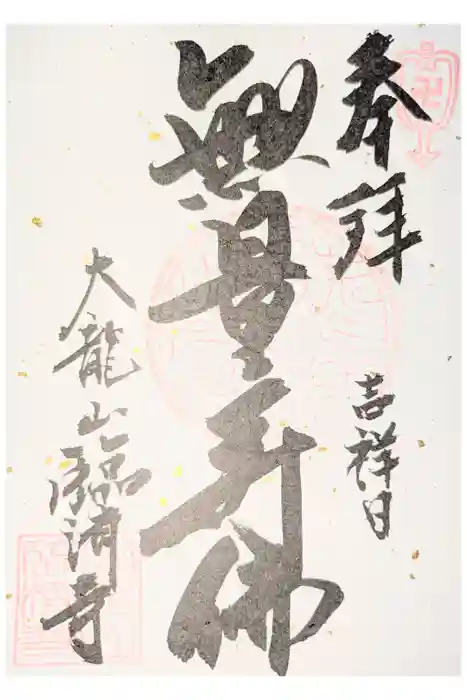 奉拝
吉祥日
無量寿佛
大龍山臨済寺